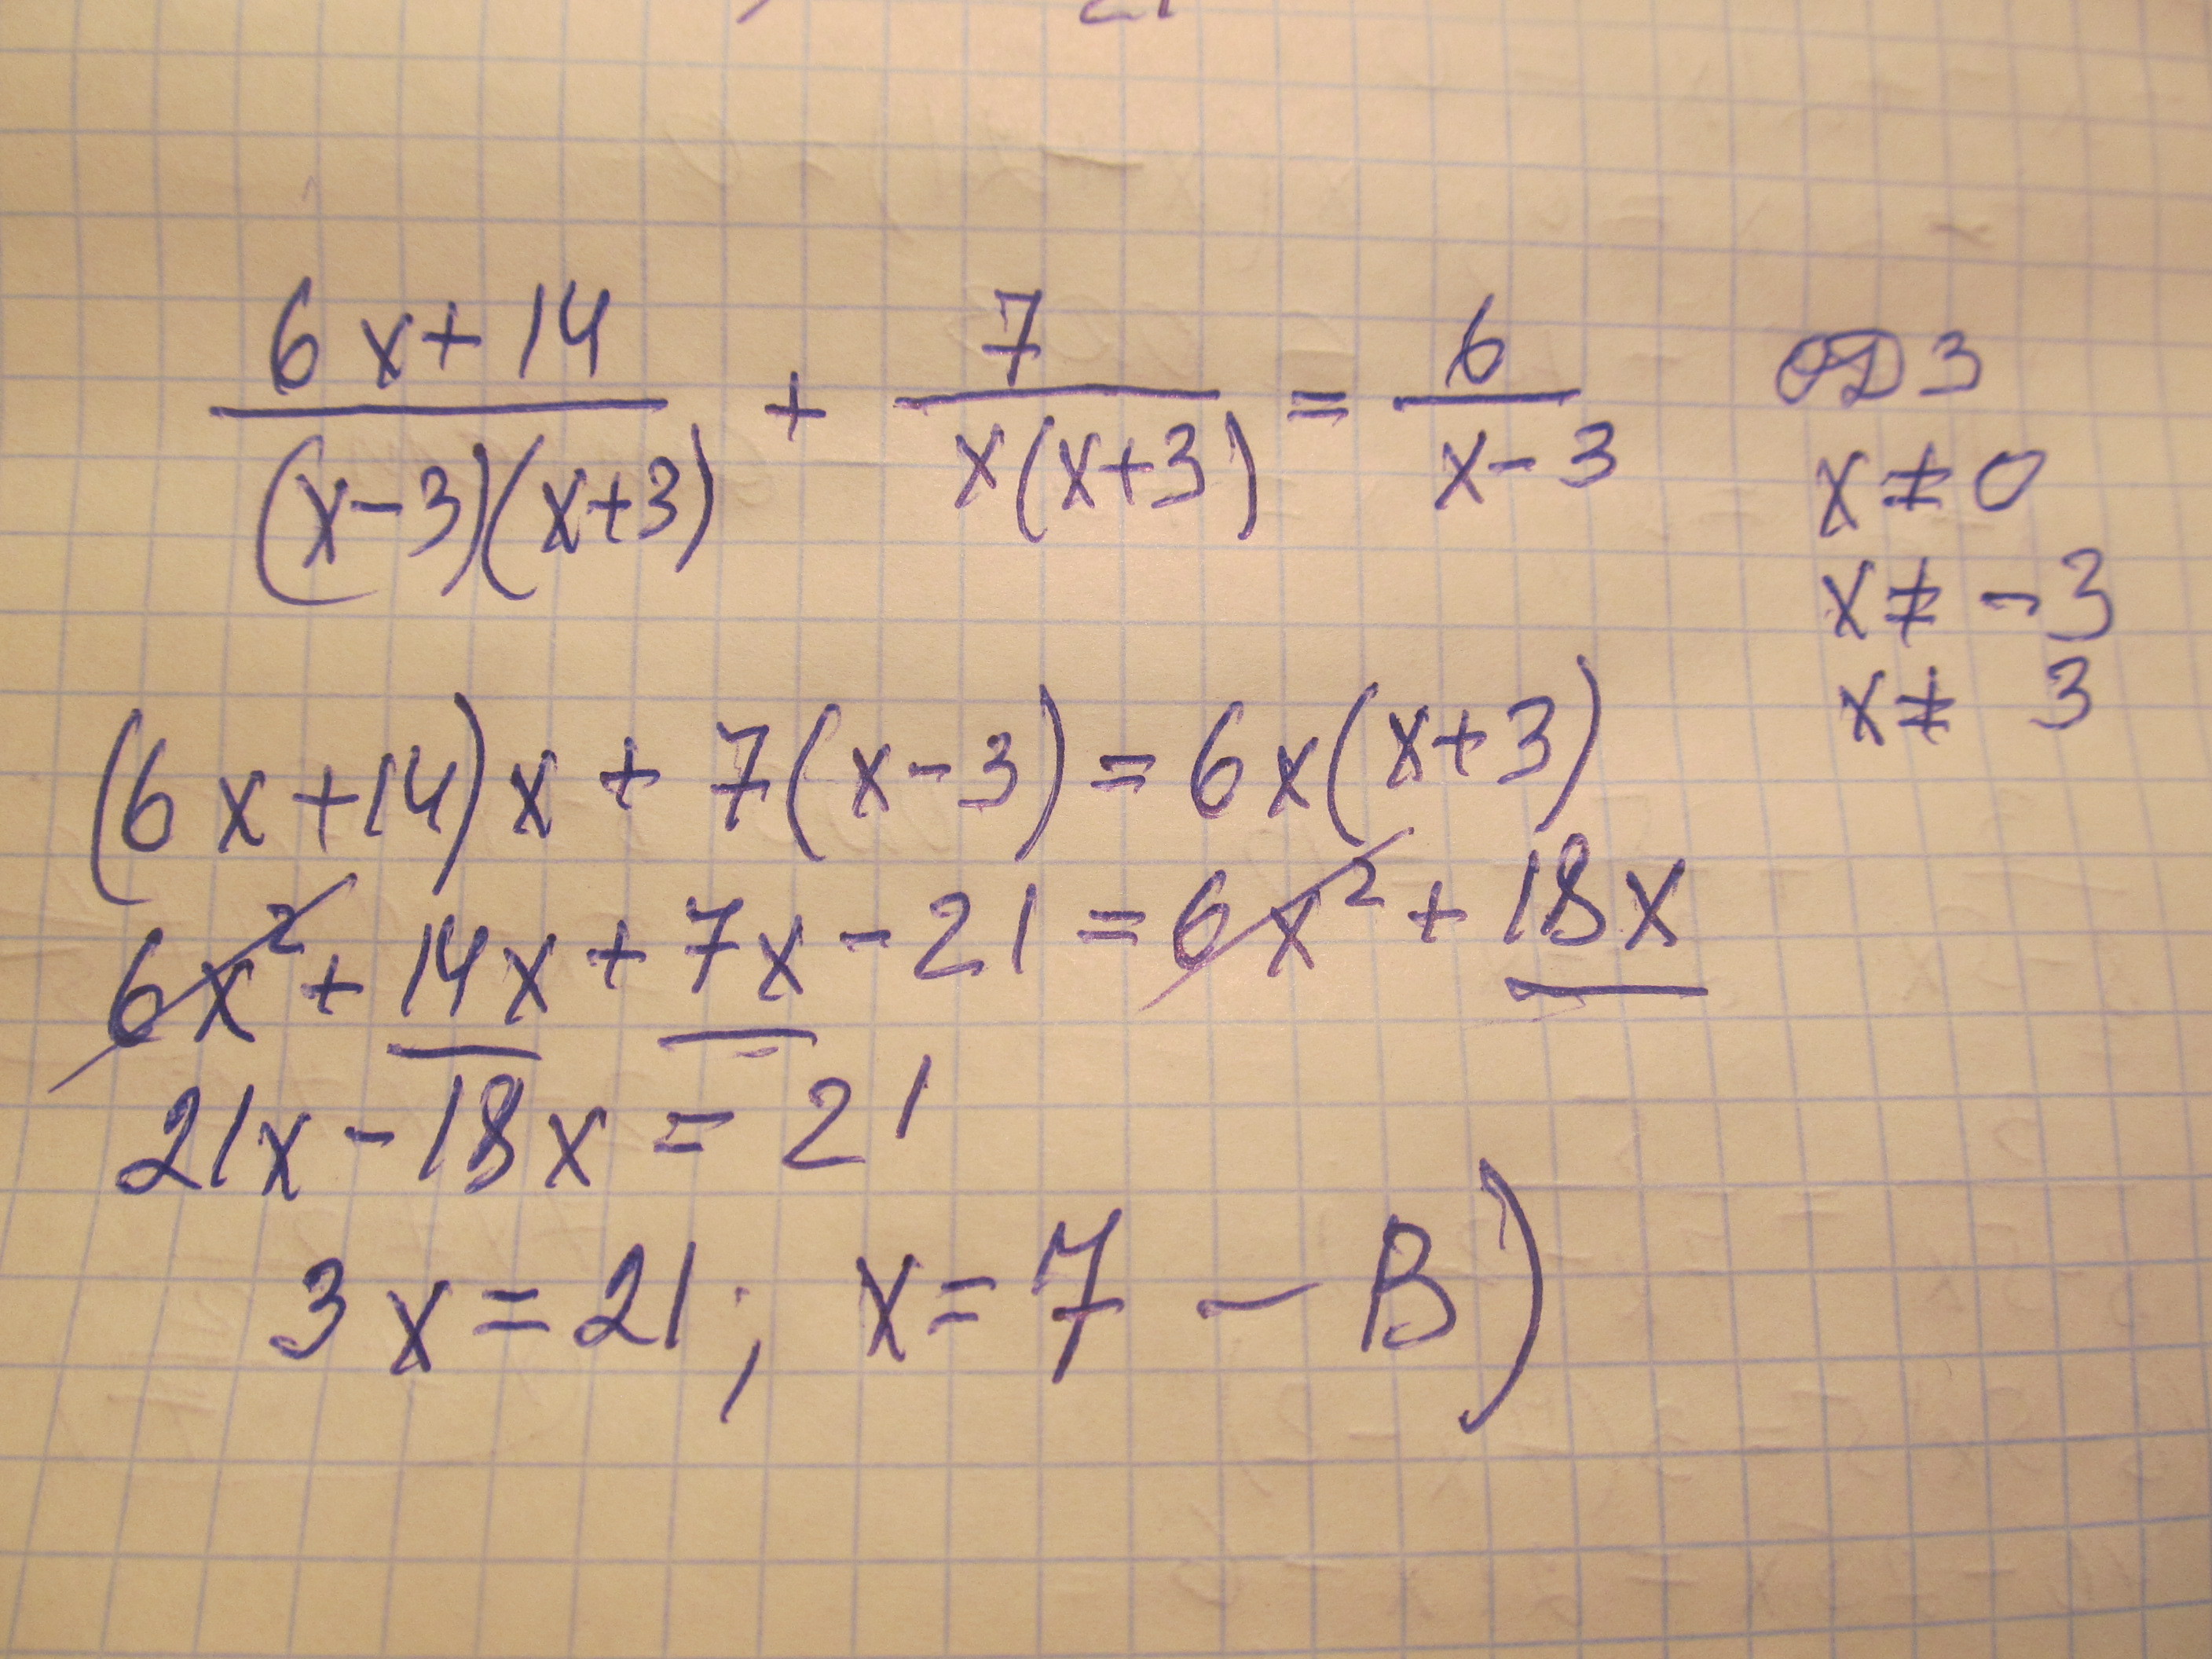 21
(6x+14)/((x-3)(x+3)) + 7/(x(x+3)) = 6/(x-3)
ОДЗ
x≠0
x≠-3
x≠ 3
(6x+14)x + 7(x-3) = 6x(x+3)
6x²+14x+7x-21=6x²+18x
21x-18x=21
3x=21; x=7 - В)